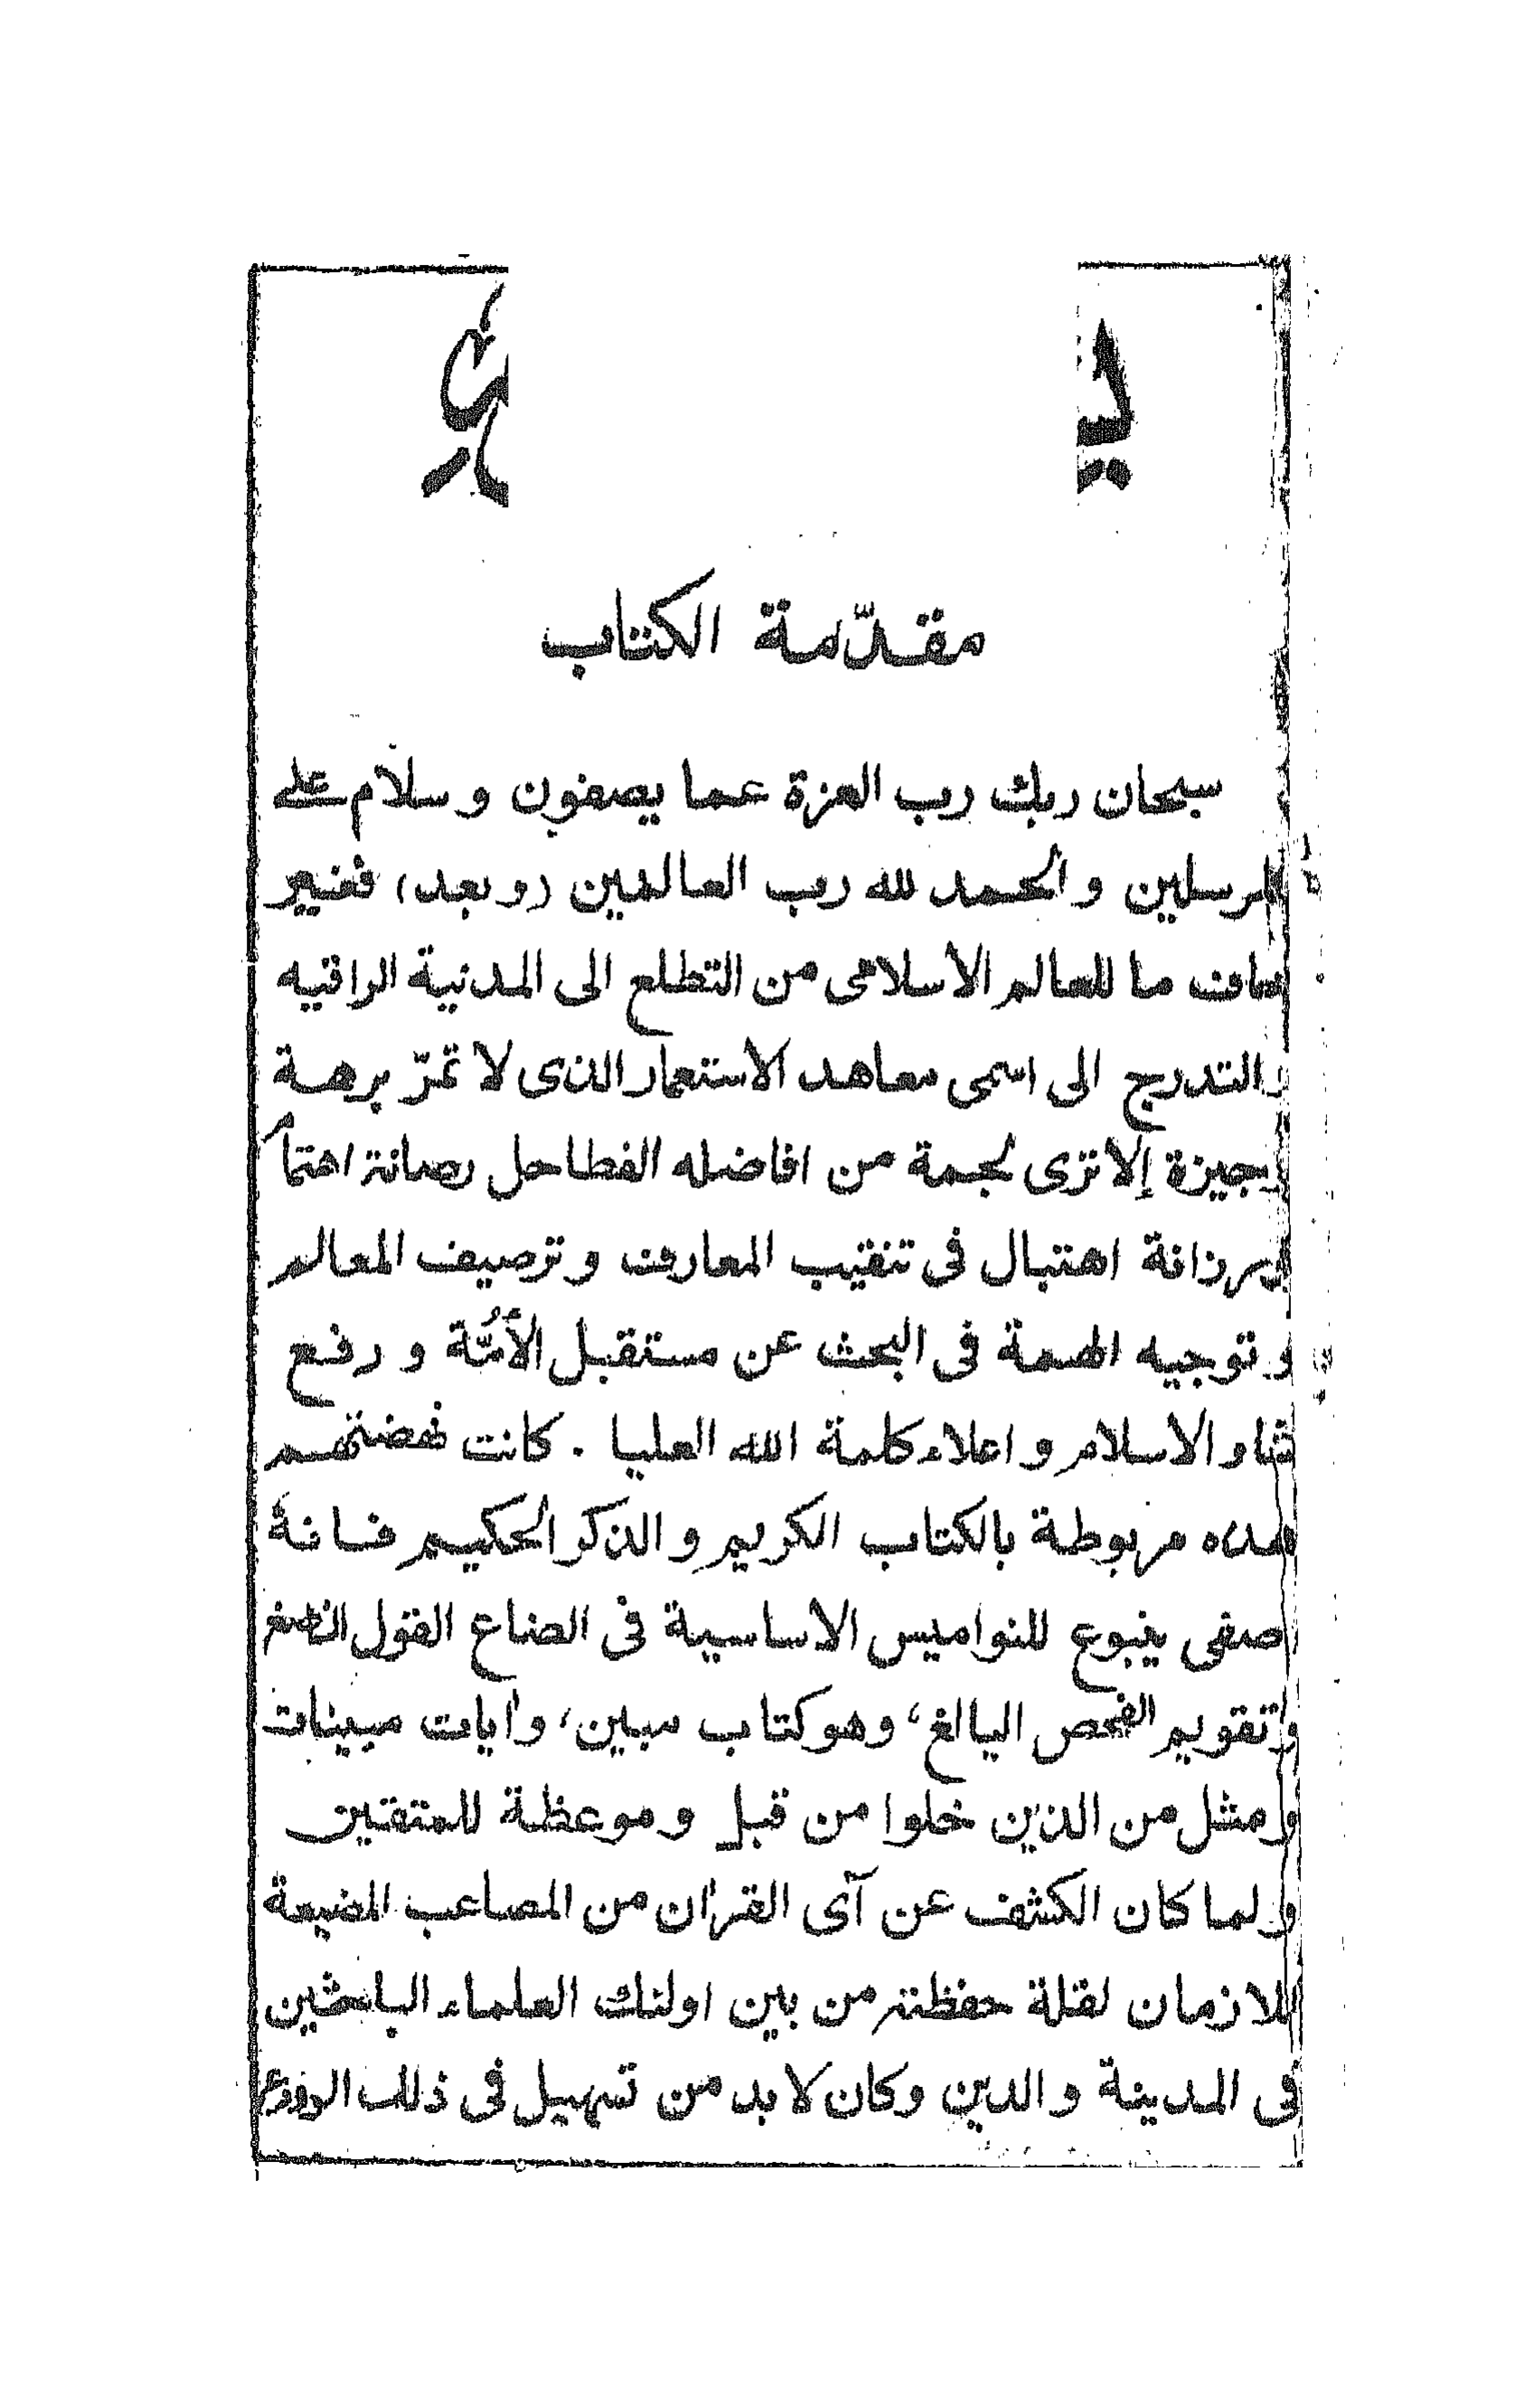 مقدّمة الكتاب
سبحان ربك رب العزة عما يصفون و سلام على
المرسلين و الحمد لله رب العالمين (و بعد) فغير
خاف ما للعالم الأسلامى من التطلع الى المدنية الراقيه
والتدرج الى اسمى معاهد الاستعمار الذى لا تمرّ برهة
وجيزة إلا ترى لجمة من افاضله الفطاحل رصانة اهتمام
ورزانة اهتبال فى تنقيب المعارف و ترصيف المعالم
و توجيه الهمة فى البحث عن مستقبل الأمُّة و رفع
الاسلام و اعلاء كلمة الله العليا . كانت نهضتهم
هذه مربوطة بالكتاب الكريم و الذكر الحكيم فانة
اصفى ينبوع للنواميس الاساسية فى القول
و تقويم الفحص البالغ، وهو كتاب مبين، و آيات مبينات
و مثل من الذين خلوا من قبل و موعظة للمتقين
و لما كان الكشف عن آى القرآن من المصاعب المضيعة
للازمان لقلة حفظته من بين اولئك العلماء الباحثين
فى المدينة و الدين وكان لا بد من تسهيل فى ذلك